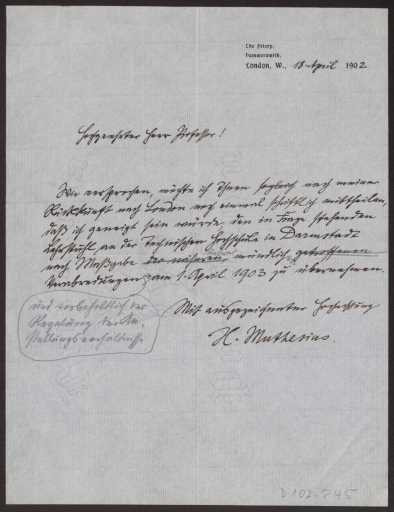 The Priory,
Hammersmith.
London, W., 18 April 1902
Hochgeehrter Herr Professor!
Wie versprochen, möchte ich Ihnen sogleich nach meiner
Rückkunft nach London noch einmal schriftlich mittheilen,
daß ich geneigt sein würde, den in Frage stehenden
Lehrstuhl an der technischen Hochschule in Darmstadt
nach Maßgabe der näheren mündlich getroffenen
Verabredungen, am 1. April 1903 zu übernehmen.
und vorbehaltlich der
Regelung der An-
stellungsverhältnisse
Mit ausgezeichneter Hochachtung
H. Muthesius.
D 102-845